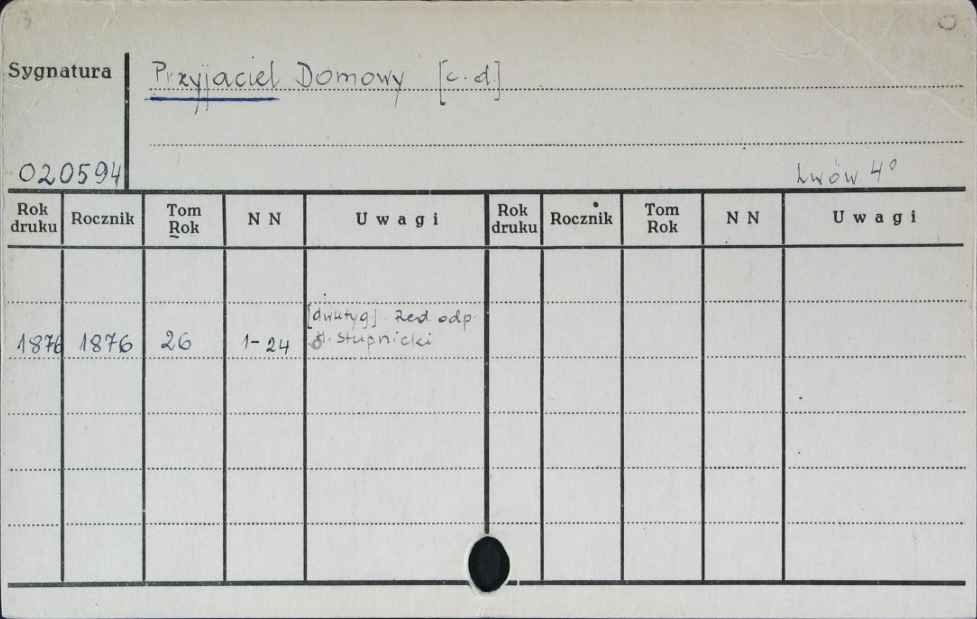 Sygnatura
Przyjaciel Domowy [c.d.]
020594
Lwów 4°
Rok druku Rocznik Tom Rok NN Uwagi Rok druku Rocznik Tom Rok NN Uwagi
[dwutyg] Red odp.
1876 1876 26 1-24 Stupnicki